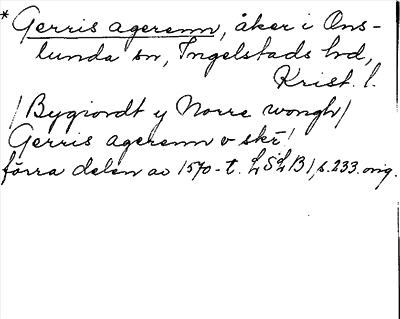 * Gerris agerenn, åker i Ons-
lunda sn, Ingelstads hd,
Krist. l.
/Bygiordt y Norre wongh/
Gerris agerenn v skr!
förra delen av 1570-t. LSLB 1, s. 233. orig.